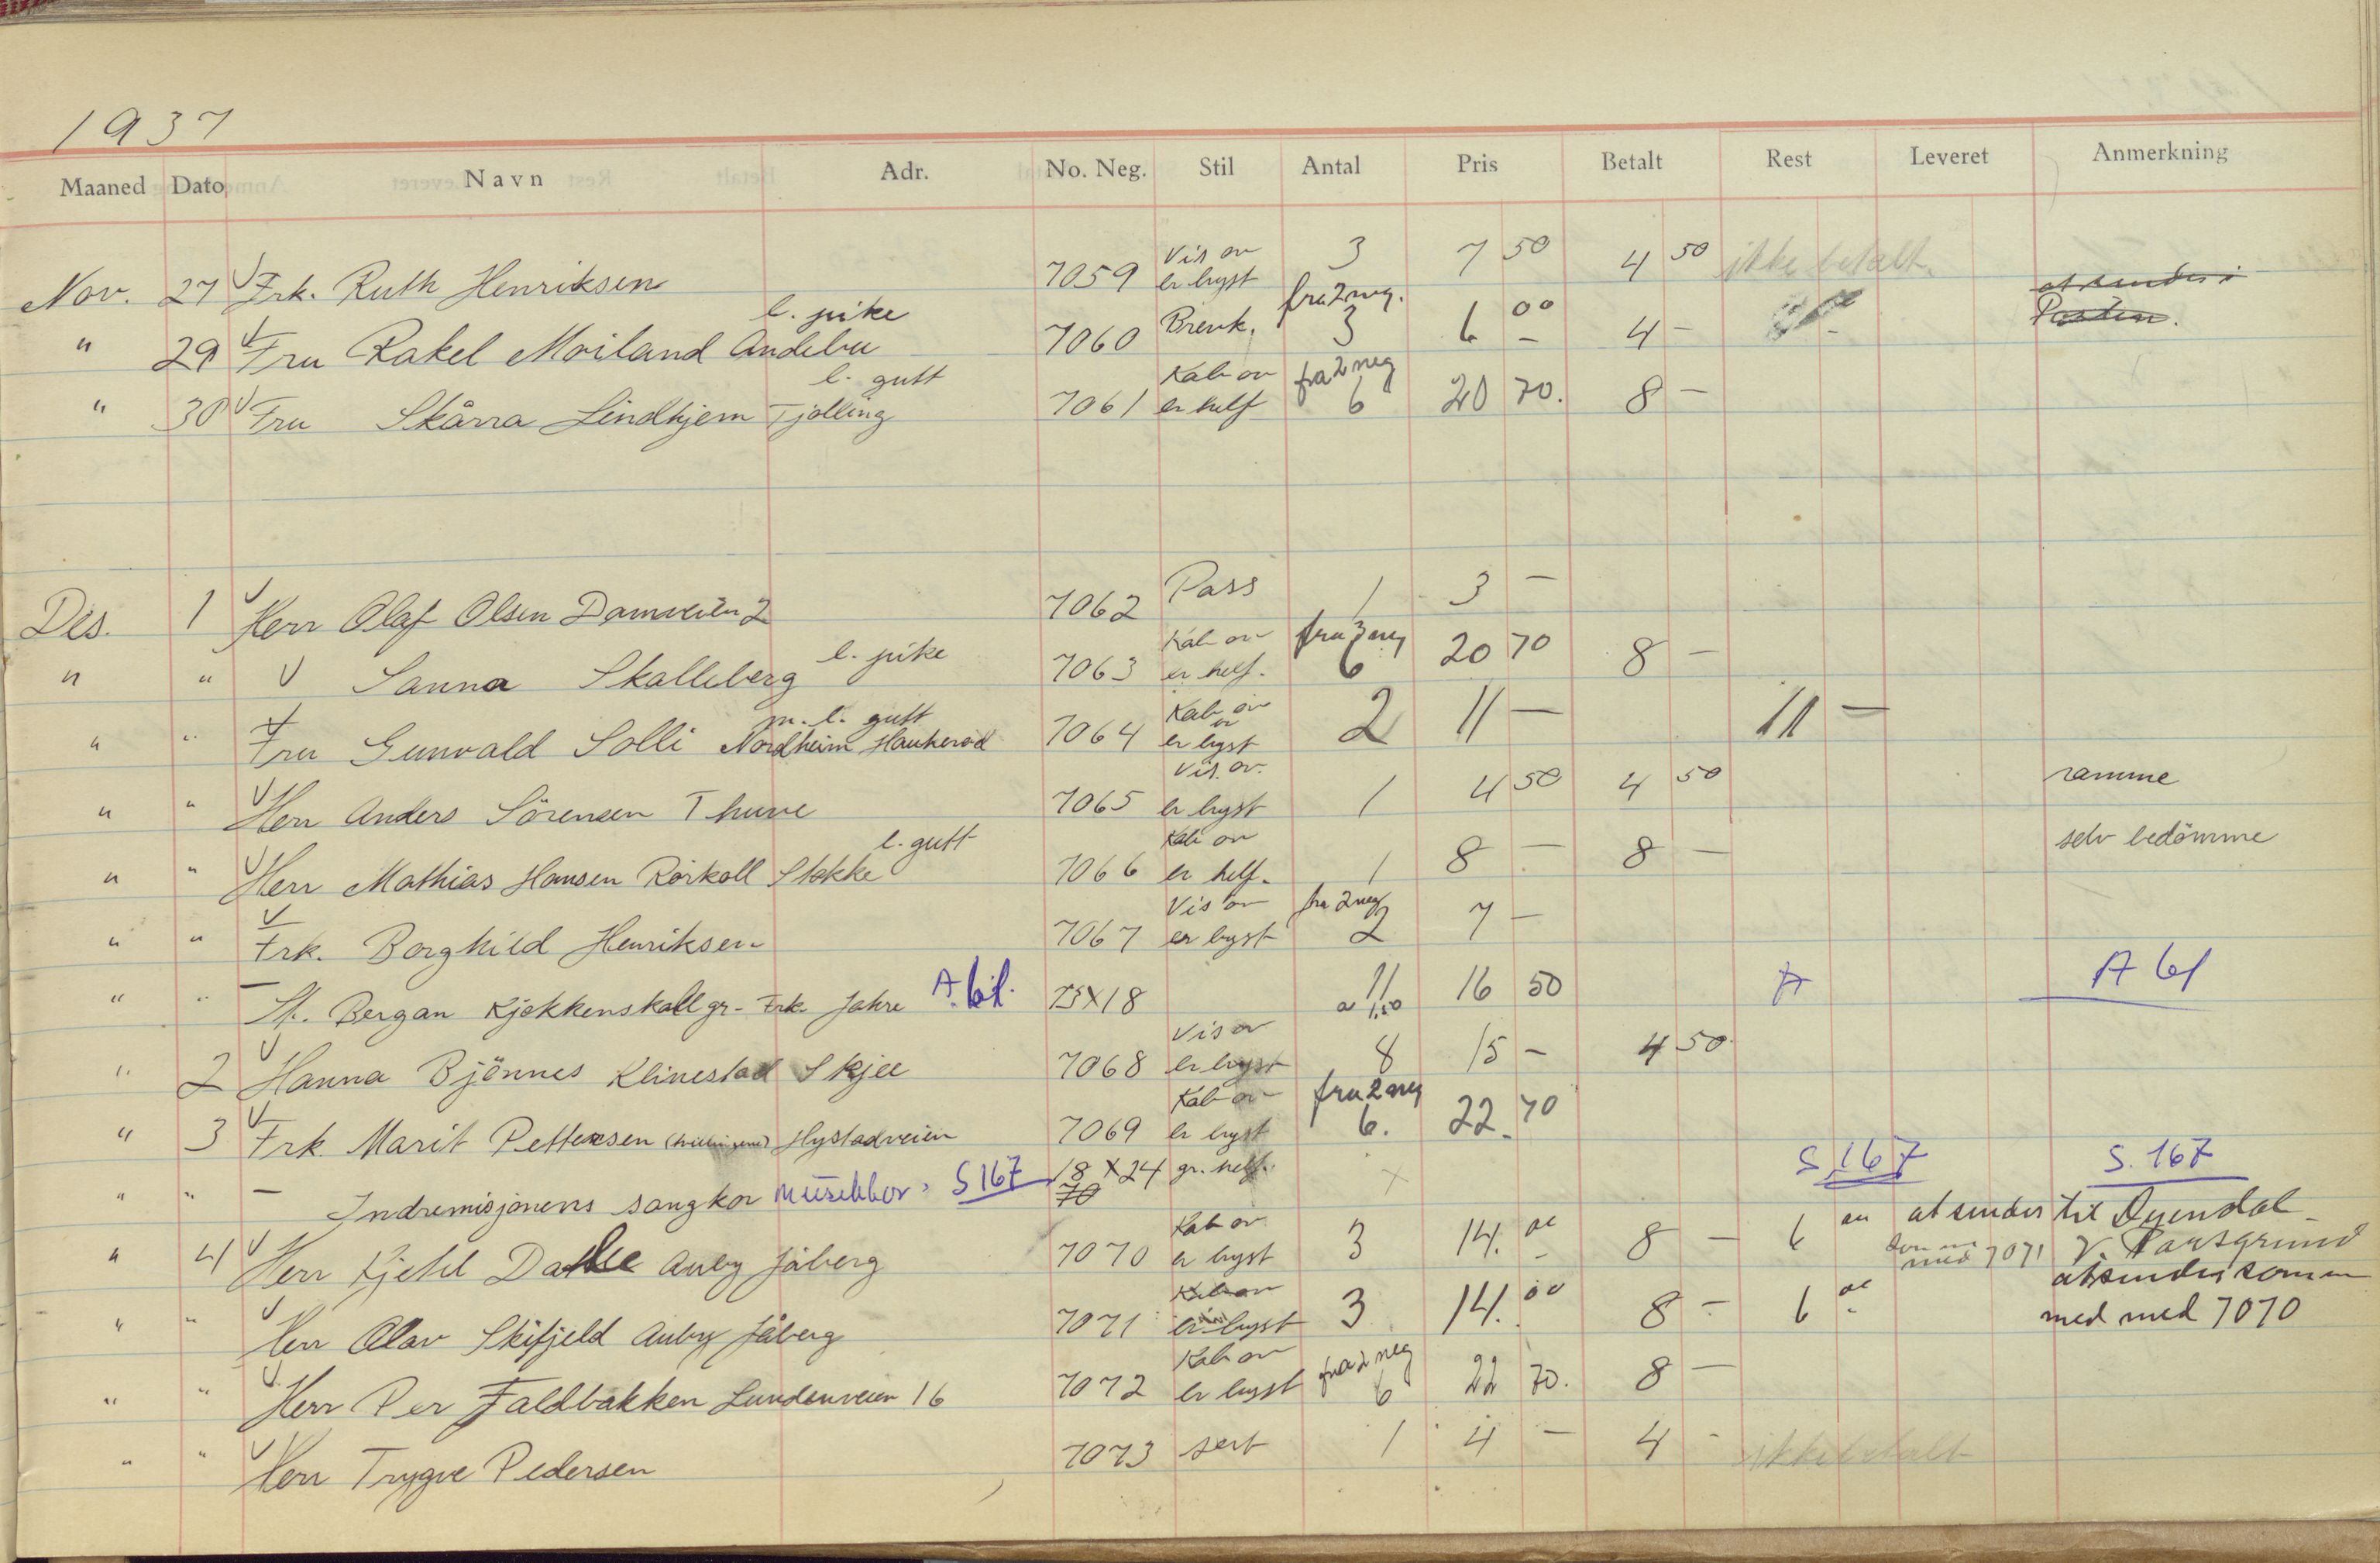 1937
Maaned Dato Navn Adr. No. Neg. Stil Antal Pris Betalt Rest Leveret Anmerkning
Vis av
Nov. 27 V Frk. Ruth Henriksen 7059 er bryst 3 7 50 4 50 ikke betalt
l. pike fra 2 neg. at sendes i
" 29 V Fru Rakel Moiland Andebu 7060 Brevk. 3 6 00 - 4 - Posten.
l. gutt Kab av fra 2 neg
" 30 V Fru Skårra Lindhjem Tjølling 7061 er helf 6 20 70. 8 -
Des. 1 V Herr Olaf Olsen Damveien 2 7062 Pass 1 3 -
l. pike Kab av fra 3 neg
" " V Sanna Skalleberg 7063 er helf. 6 20 70 8 -
m. l. gutt Kab av
" " V Fru Gunvald Solli Nordheim Haukerød 7064 er bryst 2 11 - 11 -
Vis. av.
" " V Herr Anders Sörensen Thuve 7065 er bryst 1 4 50 4 50 ramme
l. gutt Kab av
" " V Herr Mathias Hansen Rörkoll Stokke 7066 er helf. 1 8 - 8 - selv bedömme
Vis av fra 2 neg
" " V Frk. Borghild Henriksen 7067 er bryst 2 7 -
" " - St. Bergan Kjøkkenskoll gr. Frk. Jahre A. 61. 13X18 11 a 1,50 16 50 A A 61
Vis av
" 2 V Hanna Bjönnes Klinestad Skjee 7068 er bryst 8 15 - 4 50
Kab av fra 2 neg
" 3 V Frk. Marit Pettersen (tvillingene) Hystadveien 7069 er bryst 6. 22. 70
" " - Indremisjonens sangkor Musikkor S 167 18 X 24 gr. helf. X S 167 S. 167
70
Kab av at sendes til Øyendal
" 4 V Herr Kjetil Dalle Auby Jåberg 7070 er bryst 3 14. 00 8 - 6 00 med 7071 v. Porsgrund
Kab av at sendes samm
" " V Herr Olav Skifjeld Auby Jåberg 7071 er bryst 3 14. 00 8 - 6 00 med med 7070
Kab av fra 2 neg
" " V Herr Per Faldbakken Lundenveien 16 7072 er bryst 6 22 70. 8 -
" " V Herr Trygve Pedersen 7073 sert 1 4 - 4 - ikke betalt